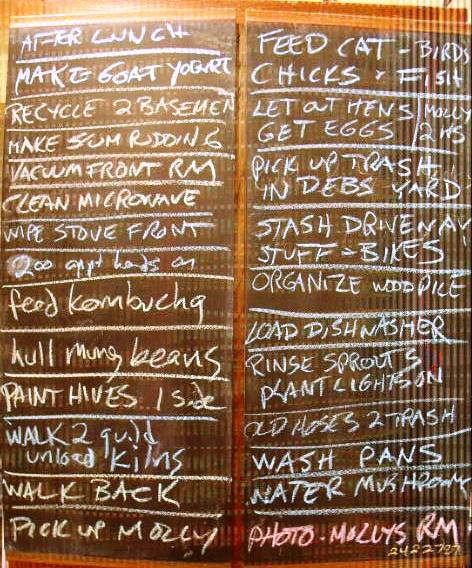 AFTER LUNCH
MAKE GOAT YOGURT
RECYCLE 2 BASEMEN
MAKE SUM PUDDING
VACUUM FRONT RM
CLEAN MICROWAVE
WIPE STOVE FRONT
200 appt hands on
feed kombucha
hull mung beans
PAINT HIVES 1 side
WALK 2 guild
unload kilns
WALK BACK
PICK UP MOLLY
FEED CAT - BIRDS
CHICKS - FISH
LET OUT HENS MOLLY
GET EGGS 2 HS
PICK UP TRASH
IN DEBS YARD
STASH DRIVENAV
STUFF - BIKES
ORGANIZE WOOD PILE
LOAD DISHWASHER
RINSE SPROUTS
PLANT LIGHTS ON
OLD HOSES 2 TRASH
WASH PANS
WATER MUSHROOMS
PHOTO - MOLLYS RM